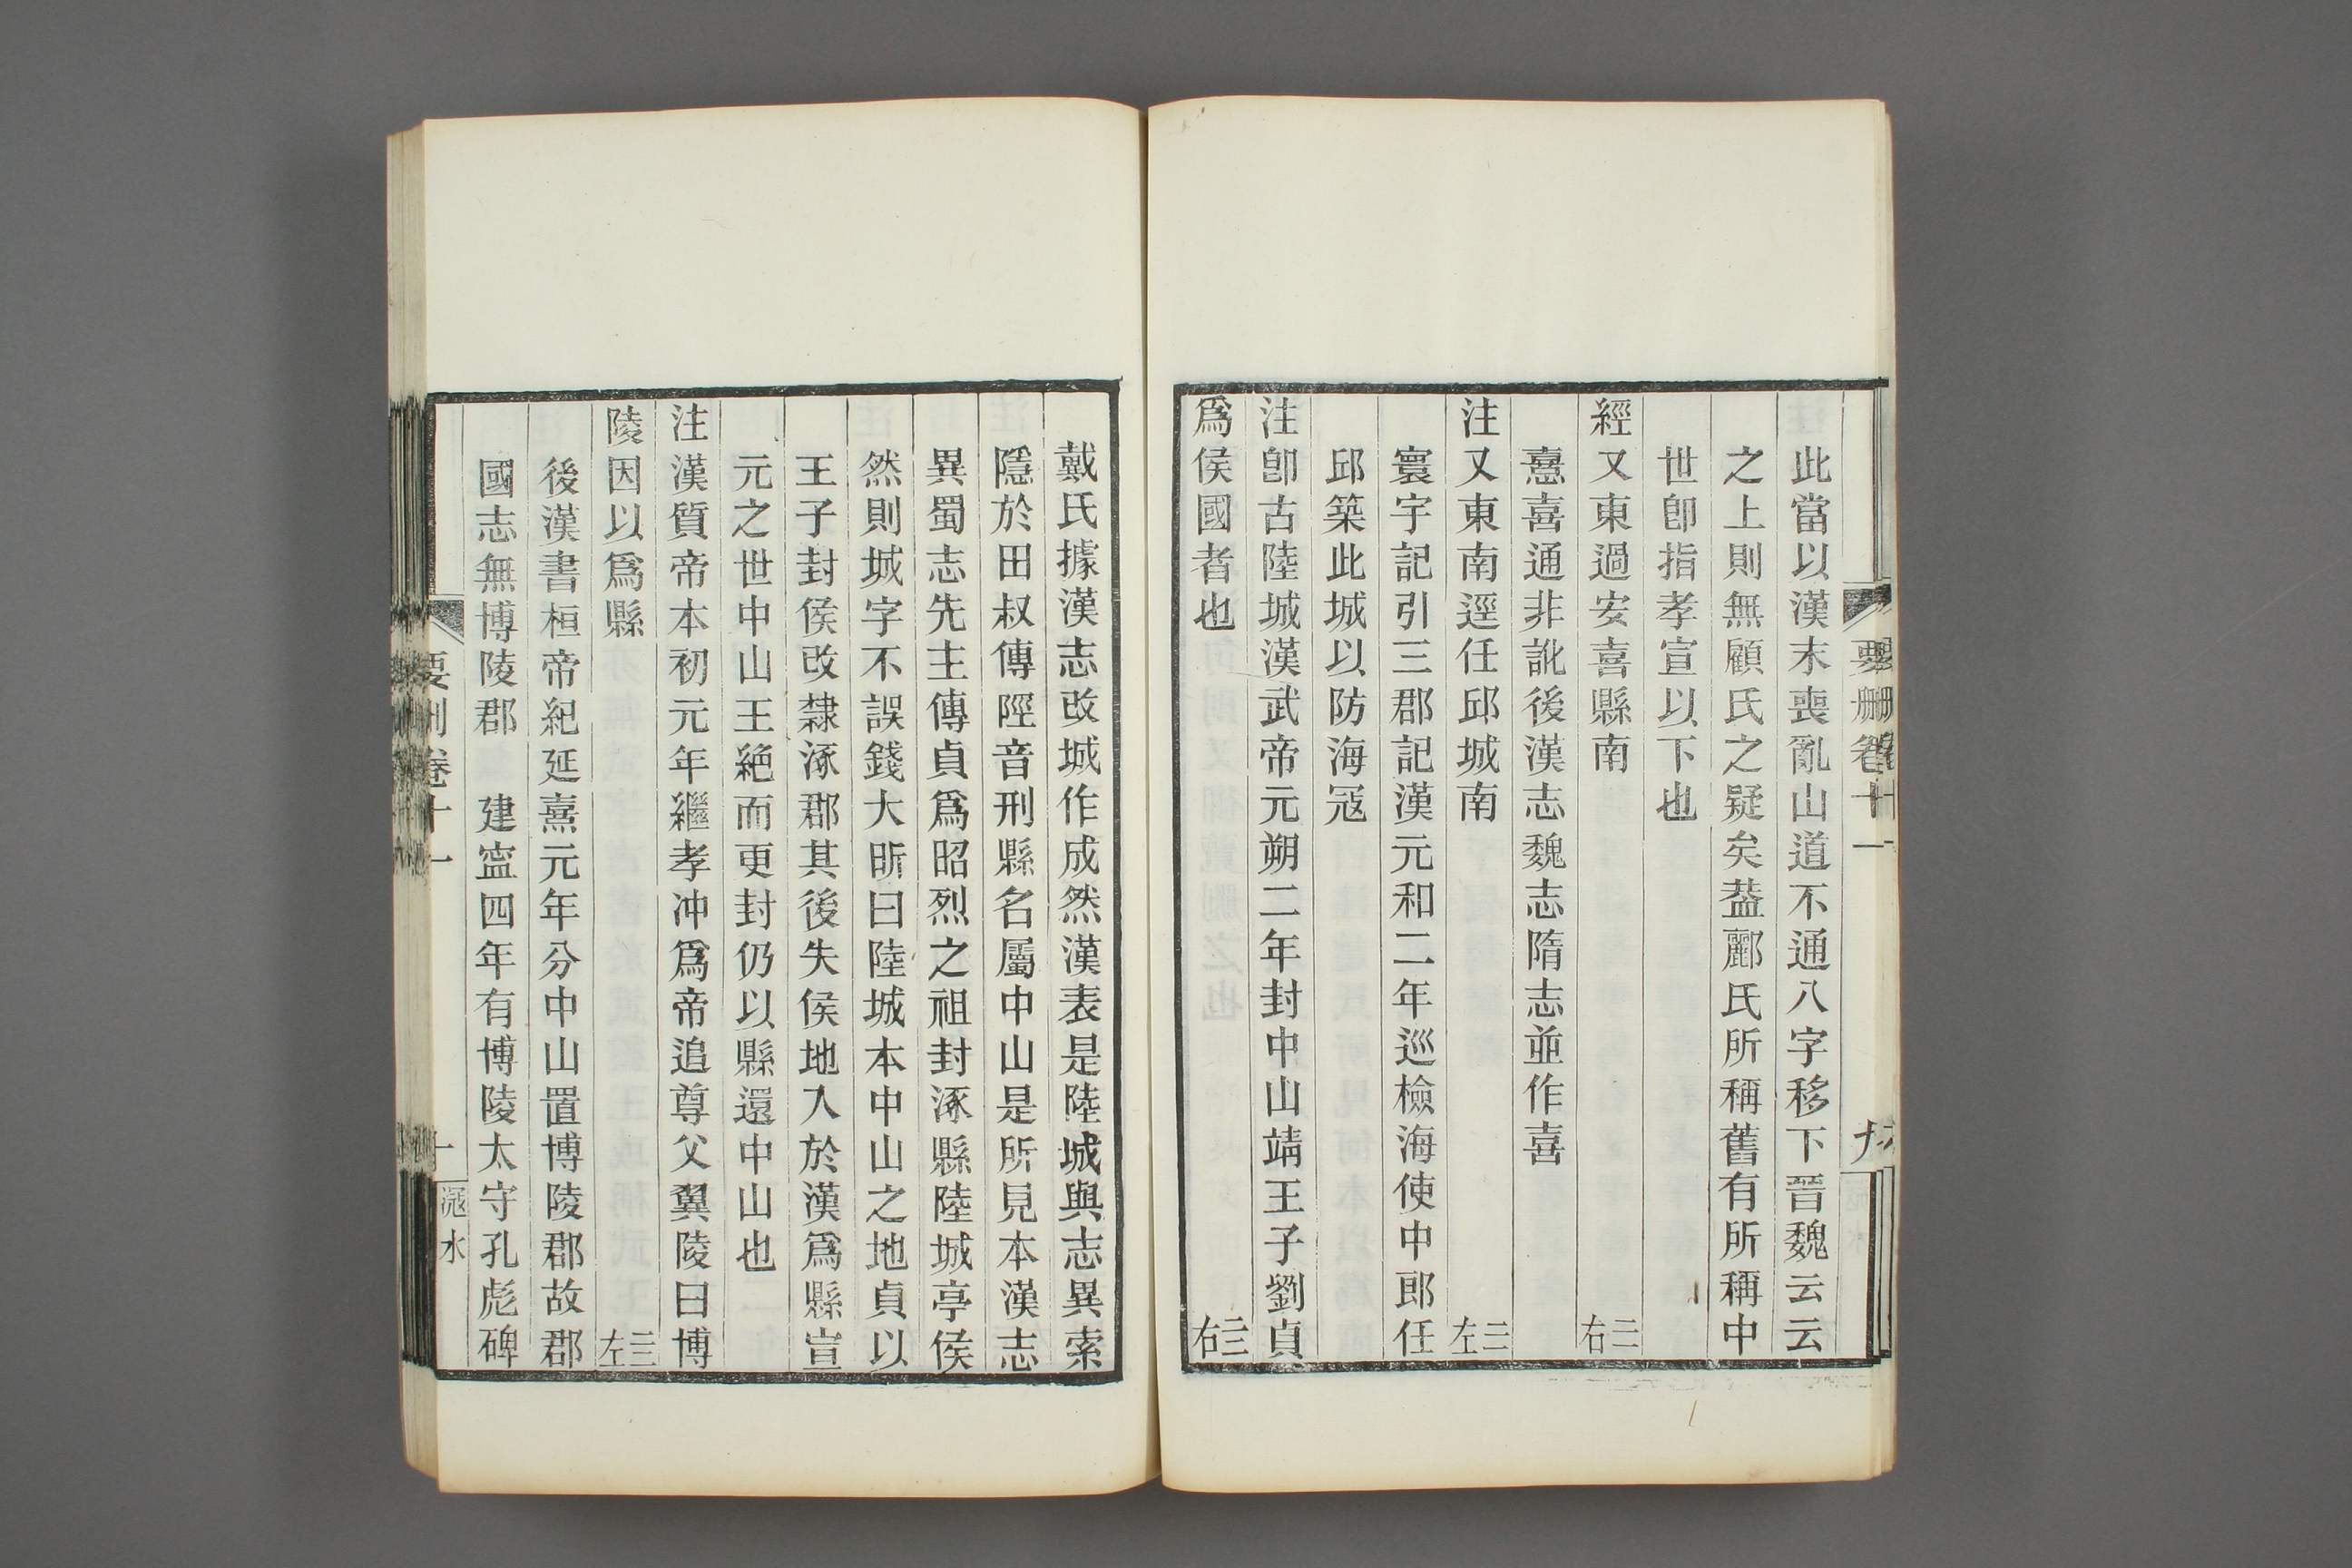 要刪卷十一
九
此當以漢末喪亂山道不通八字移下晉魏云云
之上則無顧氏之疑矣葢酈氏所稱舊有所稱中
世卽指孝宣以下也
經又東過安喜縣南 二右
憙喜通非訛後漢志魏志隋志並作喜
注又東南逕任邱城南 二左
寰宇記引三郡記漢元和二年巡檢海使中郎任
邱築此城以防海冦
注卽古陸城漢武帝元朔二年封中山靖王子劉貞
爲侯國者也 三右
戴氏據漢志改城作成然漢表是陸城與志異索
隱於田叔傳陘音刑縣名屬中山是所見本漢志
異蜀志先主傳貞爲昭烈之祖封涿縣陸城亭侯
然則城字不誤錢大昕曰陸城本中山之地貞以
王子封侯改隸涿郡其後失侯地入於漢爲縣宣
元之世中山王絕而更封仍以縣還中山也
注漢質帝本初元年繼孝冲爲帝追尊父翼陵曰博
陵因以爲縣 三左
後漢書桓帝紀延熹元年分中山置博陵郡故郡
國志無博陵郡 建寍四年有博陵太守孔彪碑
要刪卷十一
十
滱水